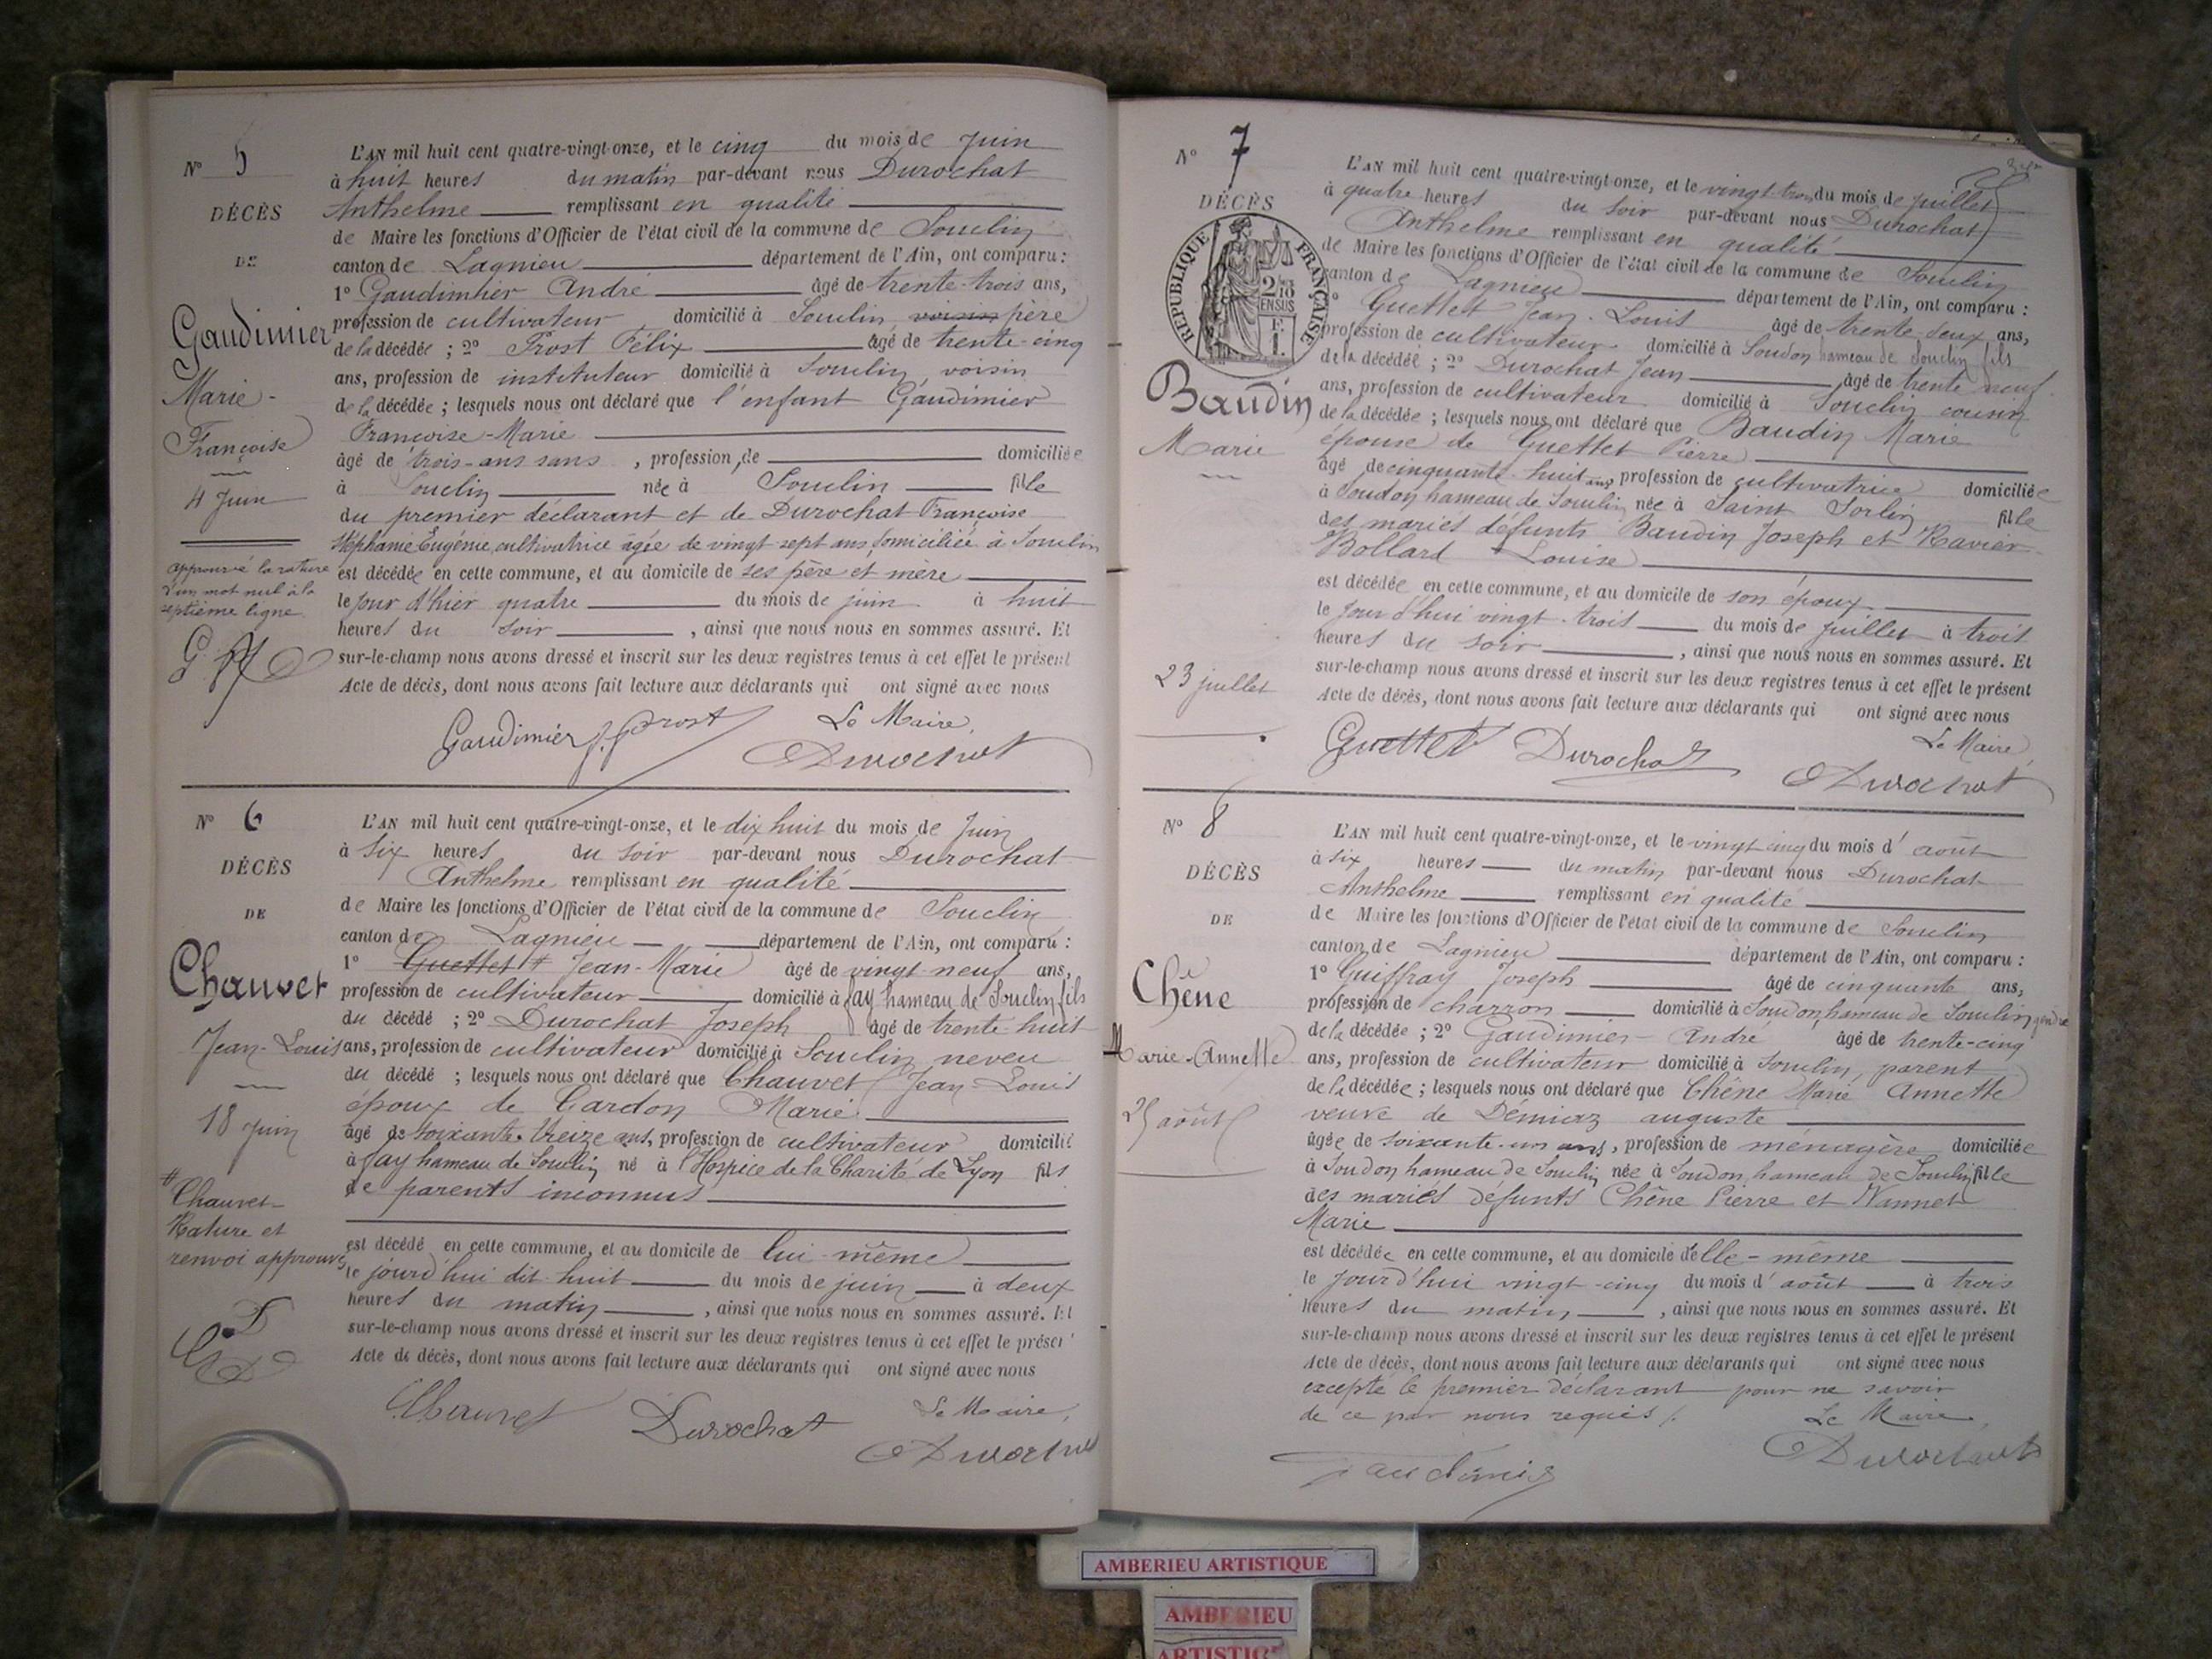 N° 5
DÉCÈS
DE
Gaudimier
Marie-
Françoise
4 Juin
approuvé la rature
d'un mot nul à la
septième ligne
L'AN mil huit cent quatre-vingt-onze, et le cinq du mois de Juin
à huit heures du matin par-devant nous Durochat
Anthelme remplissant en qualité
de Maire les fonctions d'Officier de l'état civil de la commune de Souclin
canton de Lagnieu département de l'Ain, ont comparu :
1° Gaudimier André âgé de trente-trois ans,
profession de cultivateur domicilié à Souclin, voisin père
de la décédée ; 2° Prost Félix âgé de trente-cinq
ans, profession de instituteur domicilié à Souclin, voisin
de la décédée ; lesquels nous ont déclaré que l'enfant Gaudimier
Françoise-Marie
âgé de trois-ans sans , profession de domiciliée
à Souclin née à Souclin fille
du premier déclarant et de Durochat Françoise
Stéphanie Eugénie, cultivatrice âgée de vingt sept ans, domiciliée à Souclin
est décédée en cette commune, et au domicile de ses père et mère
le jour d'hier quatre du mois de juin à huit
heures du soir , ainsi que nous nous en sommes assuré. Et
sur-le-champ nous avons dressé et inscrit sur les deux registres tenus à cet effet le présent
Acte de décès, dont nous avons fait lecture aux déclarants qui ont signé avec nous
Le Maire,
Gaudimier F. Prost Durochat
N° 6
DÉCÈS
DE
Chauvet
Jean-Louis
18 Juin
# Chauvet
Rature et
renvoi approuvés
L'AN mil huit cent quatre-vingt-onze, et le dix huit du mois de Juin
à six heures du soir par-devant nous Durochat
Anthelme remplissant en qualité
de Maire les fonctions d'Officier de l'état civil de la commune de Souclin
canton de Lagnieu département de l'Ain, ont comparu :
1° Guettet # Jean-Marie âgé de vingt-neuf ans,
profession de cultivateur domicilié à fay hameau de Souclin fils
du décédé ; 2° Durochat Joseph âgé de trente-huit
ans, profession de cultivateur domicilié à Souclin neveu
du décédé ; lesquels nous ont déclaré que Chauvet Jean-Louis
époux de Cardon Marie
âgé de soixante-treize ans, profession de cultivateur domicilié
à fay hameau de Souclin né à l'Hospice de la Charité de Lyon fils
de parents inconnus
est décédé en cette commune, et au domicile de lui-même
le jourd'hui dix huit du mois de juin à deux
heures du matin , ainsi que nous nous en sommes assuré. Et
sur-le-champ nous avons dressé et inscrit sur les deux registres tenus à cet effet le présent
Acte de décès, dont nous avons fait lecture aux déclarants qui ont signé avec nous
Le Maire,
Chauvet Durochat Durochat
N° 7
DÉCÈS
RÉPUBLIQUE FRANÇAISE
2/10
EN SUS
Baudin
Marie
23 juillet
L'AN mil huit cent quatre-vingt-onze, et le vingt-trois du mois de juillet
à quatre heures du soir par-devant nous Durochat
Anthelme remplissant en qualité
de Maire les fonctions d'Officier de l'état civil de la commune de Souclin
canton de Lagnieu département de l'Ain, ont comparu :
1° Guettet Jean-Louis âgé de trente-deux ans,
profession de cultivateur domicilié à Soudon hameau de Souclin fils
de la décédée ; 2° Durochat Jean âgé de trente neuf
ans, profession de cultivateur domicilié à Souclin cousin
de la décédée ; lesquels nous ont déclaré que Baudin Marie
épouse de Guettet Pierre
âgé de cinquante-huit ans, profession de cultivatrice domiciliée
à Soudon hameau de Souclin née à Saint Sorlin fille
des mariés défunts Baudin Joseph et Ravier-
Bollard Louise
est décédée en cette commune, et au domicile de son époux
le jourd'hui vingt-trois du mois de juillet à trois
heures du soir , ainsi que nous nous en sommes assuré. Et
sur-le-champ nous avons dressé et inscrit sur les deux registres tenus à cet effet le présent
Acte de décès, dont nous avons fait lecture aux déclarants qui ont signé avec nous
Le Maire,
Guettet Durochat Durochat
N° 8
DÉCÈS
DE
Chêne
Marie-Annette
25 août
L'AN mil huit cent quatre-vingt-onze, et le vingt cinq du mois d'août
à six heures du matin par-devant nous Durochat
Anthelme remplissant en qualité
de Maire les fonctions d'Officier de l'état civil de la commune de Souclin
canton de Lagnieu département de l'Ain, ont comparu :
1° Guiffray Joseph âgé de cinquante ans,
profession de charron domicilié à Soudon, hameau de Souclin gendre
de la décédée ; 2° Gaudimier André âgé de trente-cinq
ans, profession de cultivateur domicilié à Souclin, parent
de la décédée ; lesquels nous ont déclaré que Chêne Marie Annette
veuve de Demiaz auguste
âgée de soixante-un ans, profession de ménagère domiciliée
à Soudon hameau de Souclin née à Soudon, hameau de Souclin fille
des mariés défunts Chêne Pierre et Vannet
Marie
est décédée en cette commune, et au domicile d'elle-même
le jourd'hui vingt-cinq du mois d'août à trois
heures du matin , ainsi que nous nous en sommes assuré. Et
sur-le-champ nous avons dressé et inscrit sur les deux registres tenus à cet effet le présent
Acte de décès, dont nous avons fait lecture aux déclarants qui ont signé avec nous
excepté le premier déclarant pour ne savoir
de ce par nous requis /.
Le Maire,
Gaudimier Durochat
AMBERIEU ARTISTIQUE
AMBERIEU
ARTISTIQUE